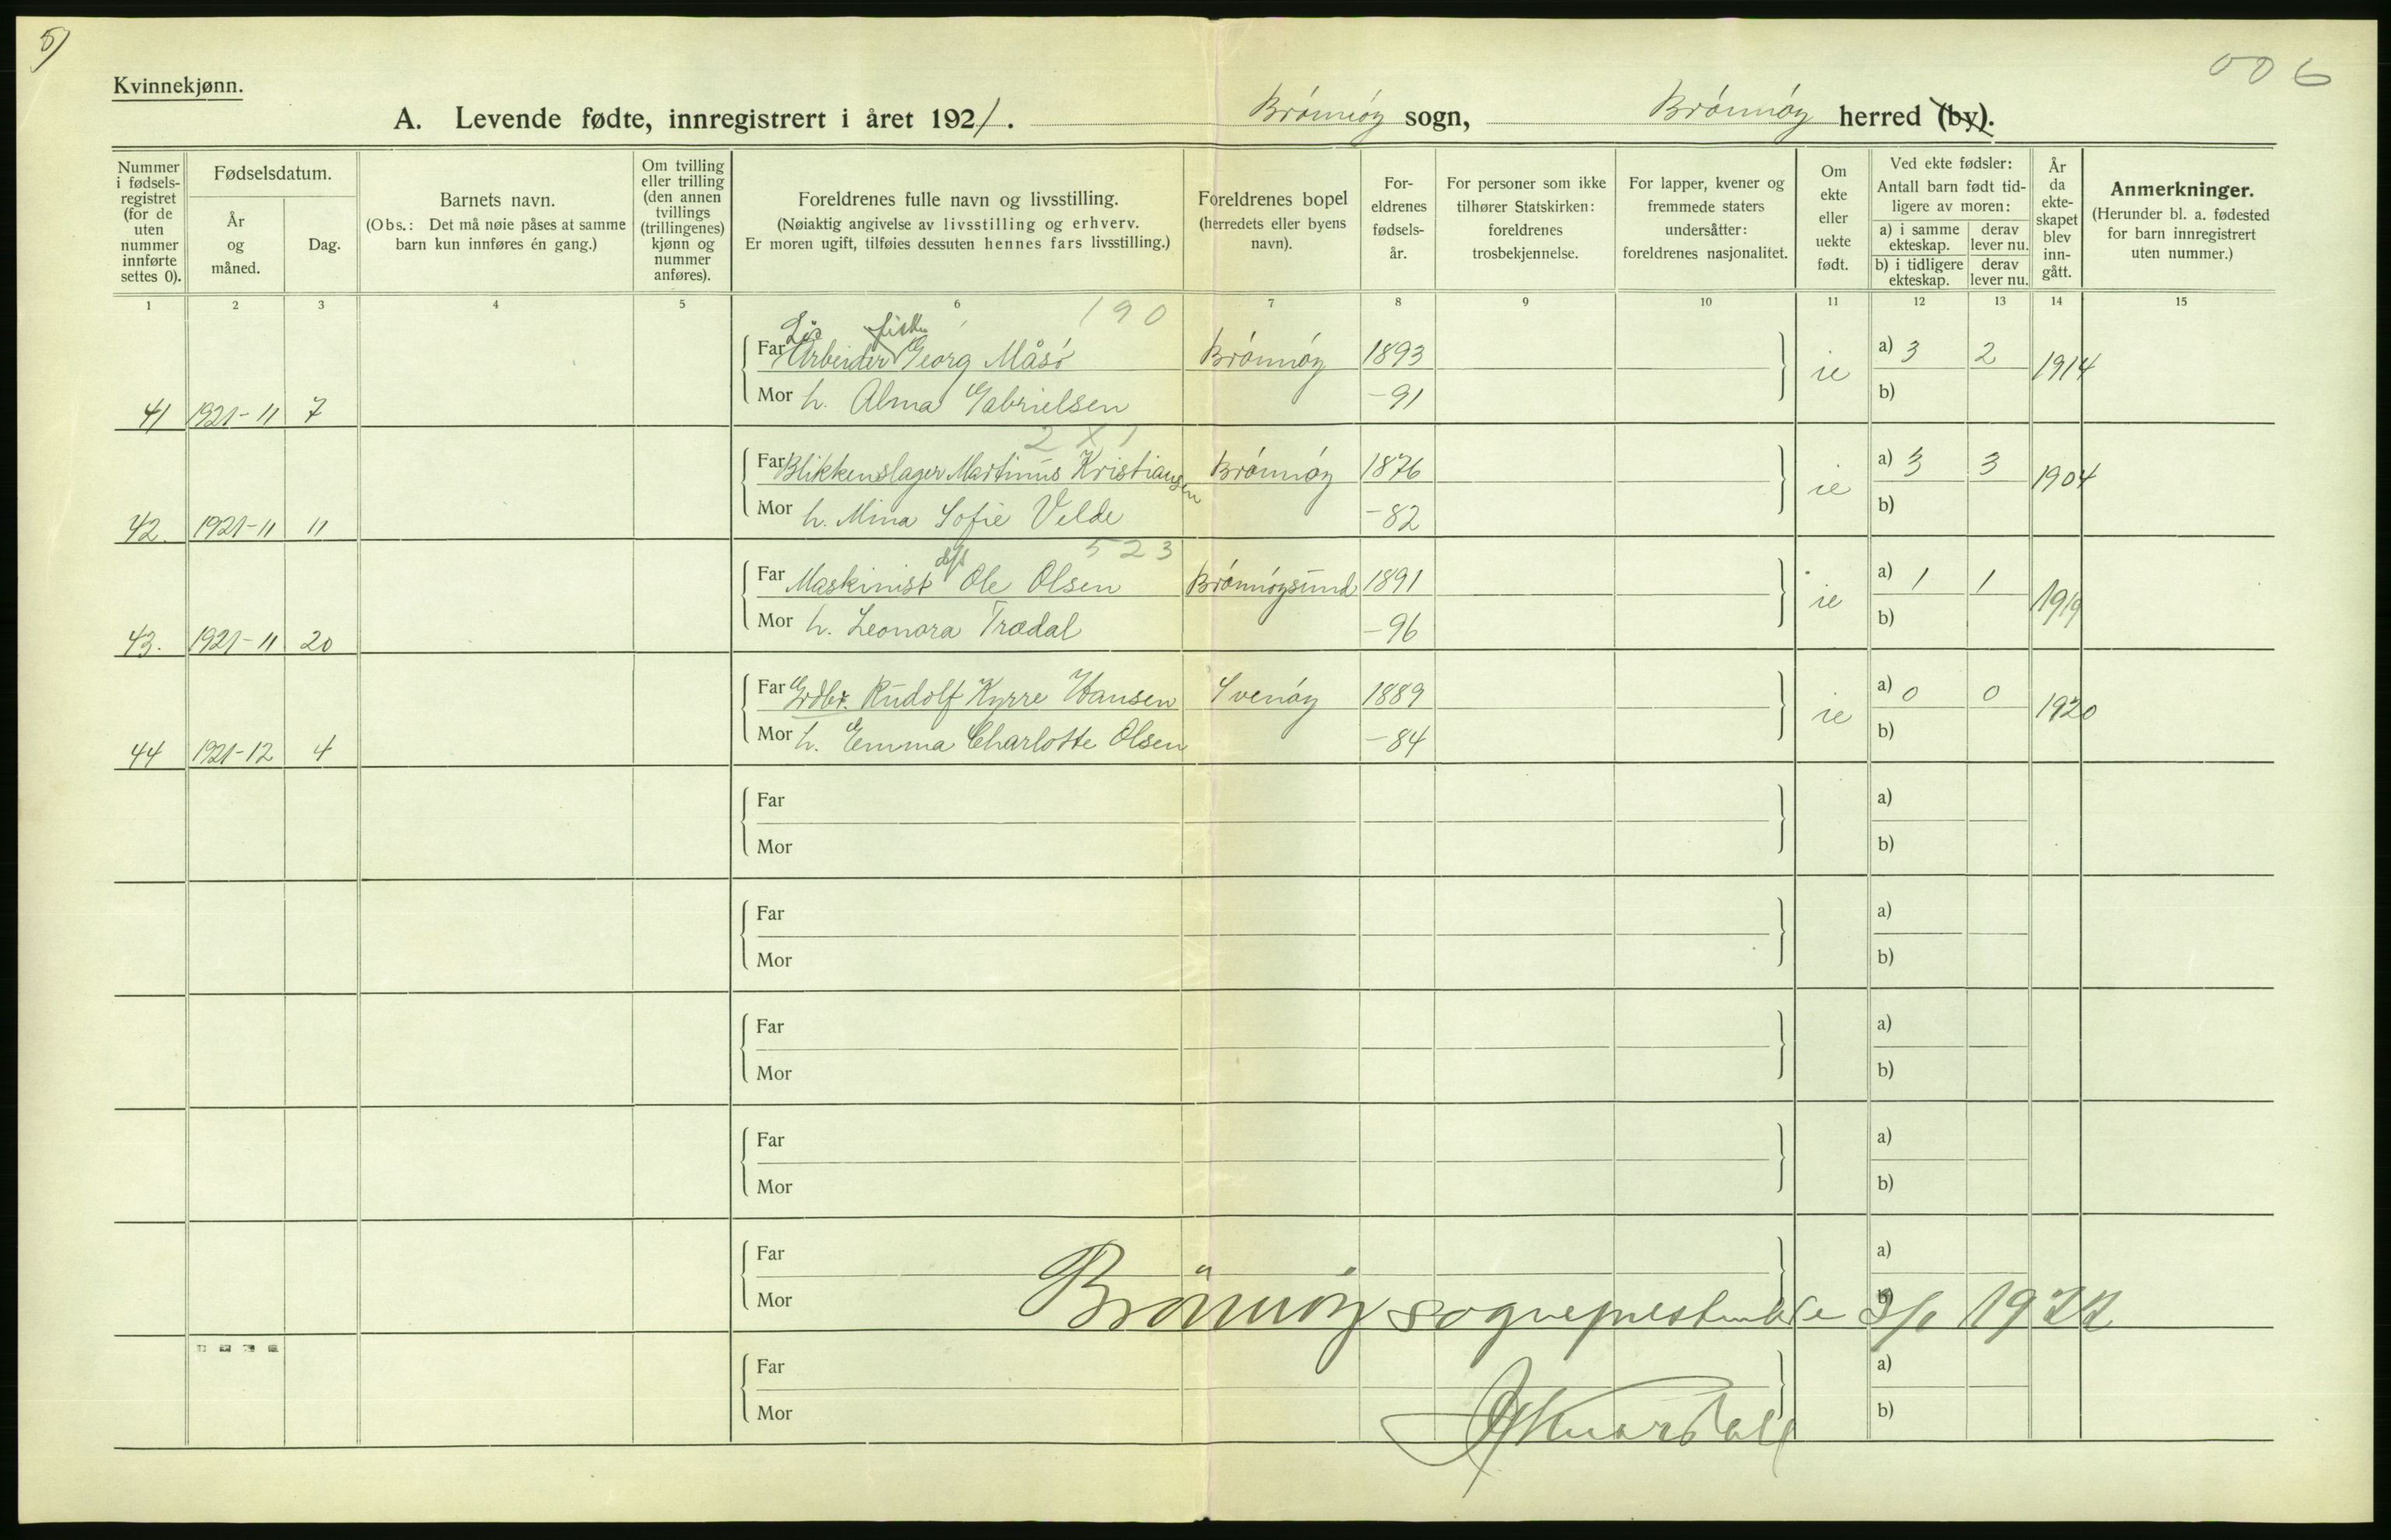 5)
006
Kvinnekjønn.
A. Levende fødte, innregistrert i året 1921. Brønnøy sogn, Brønnøy herred (by).
Nummer i fødsels-registret (for de uten nummer innførte settes 0).
Fødselsdatum.
År og måned.
Dag.
Barnets navn.
(Obs.: Det må nøie påses at samme barn kun innføres én gang.)
Om tvilling eller trilling (den annen tvillings (trillingenes) kjønn og nummer anføres).
Foreldrenes fulle navn og livsstilling.
(Nøiaktig angivelse av livsstilling og erhverv.
Er moren ugift, tilføies dessuten hennes fars livsstilling.)
Foreldrenes bopel
(herredets eller byens navn).
For-eldrenes fødsels-år.
For personer som ikke tilhører Statskirken: foreldrenes trosbekjennelse.
For lapper, kvener og fremmede staters undersåtter: foreldrenes nasjonalitet.
Om ekte eller uekte født.
Ved ekte fødsler:
Antall barn født tid-ligere av moren:
a) i samme ekteskap.
derav lever nu.
b) i tidligere ekteskap.
derav lever nu.
År da ekte-skapet blev inn-gått.
Anmerkninger.
(Herunder bl. a. fødested for barn innregistrert uten nummer.)
1 2 3 4 5 6 7 8 9 10 11 12 13 14 15
190
Løs fisker
Far Arbeider Georg Måsø Brønnøy 1893 a) 3 2
41 1921-11 7 Mor h. Alma Gabrielsen -91 ie b) 1914
2 X 1
Far Blikkenslager Martinus Kristiansen Brønnøy 1876 a) 3 3
42. 1921-11 11 Mor h. Mina Sofie Velde -82 ie b) 1904
523
Far Maskinist Ole Olsen Brønnøysund 1891 a) 1 1
43. 1921-11 20 Mor h. Leonora Trædal -96 ie b) 1919
Far Grdbr. Rudolf Kyrre Hansen Svenøy 1889 a) 0 0
44 1921-12 4 Mor h. Emma Charlotte Olsen -84 ie b) 1920
Far a)
Mor b)
Far a)
Mor b)
Far a)
Mor b)
Far a)
Mor b)
Far a)
Mor b)
Brønnøy sogneprestembede 3/1 1922
Far a)
Mor b)